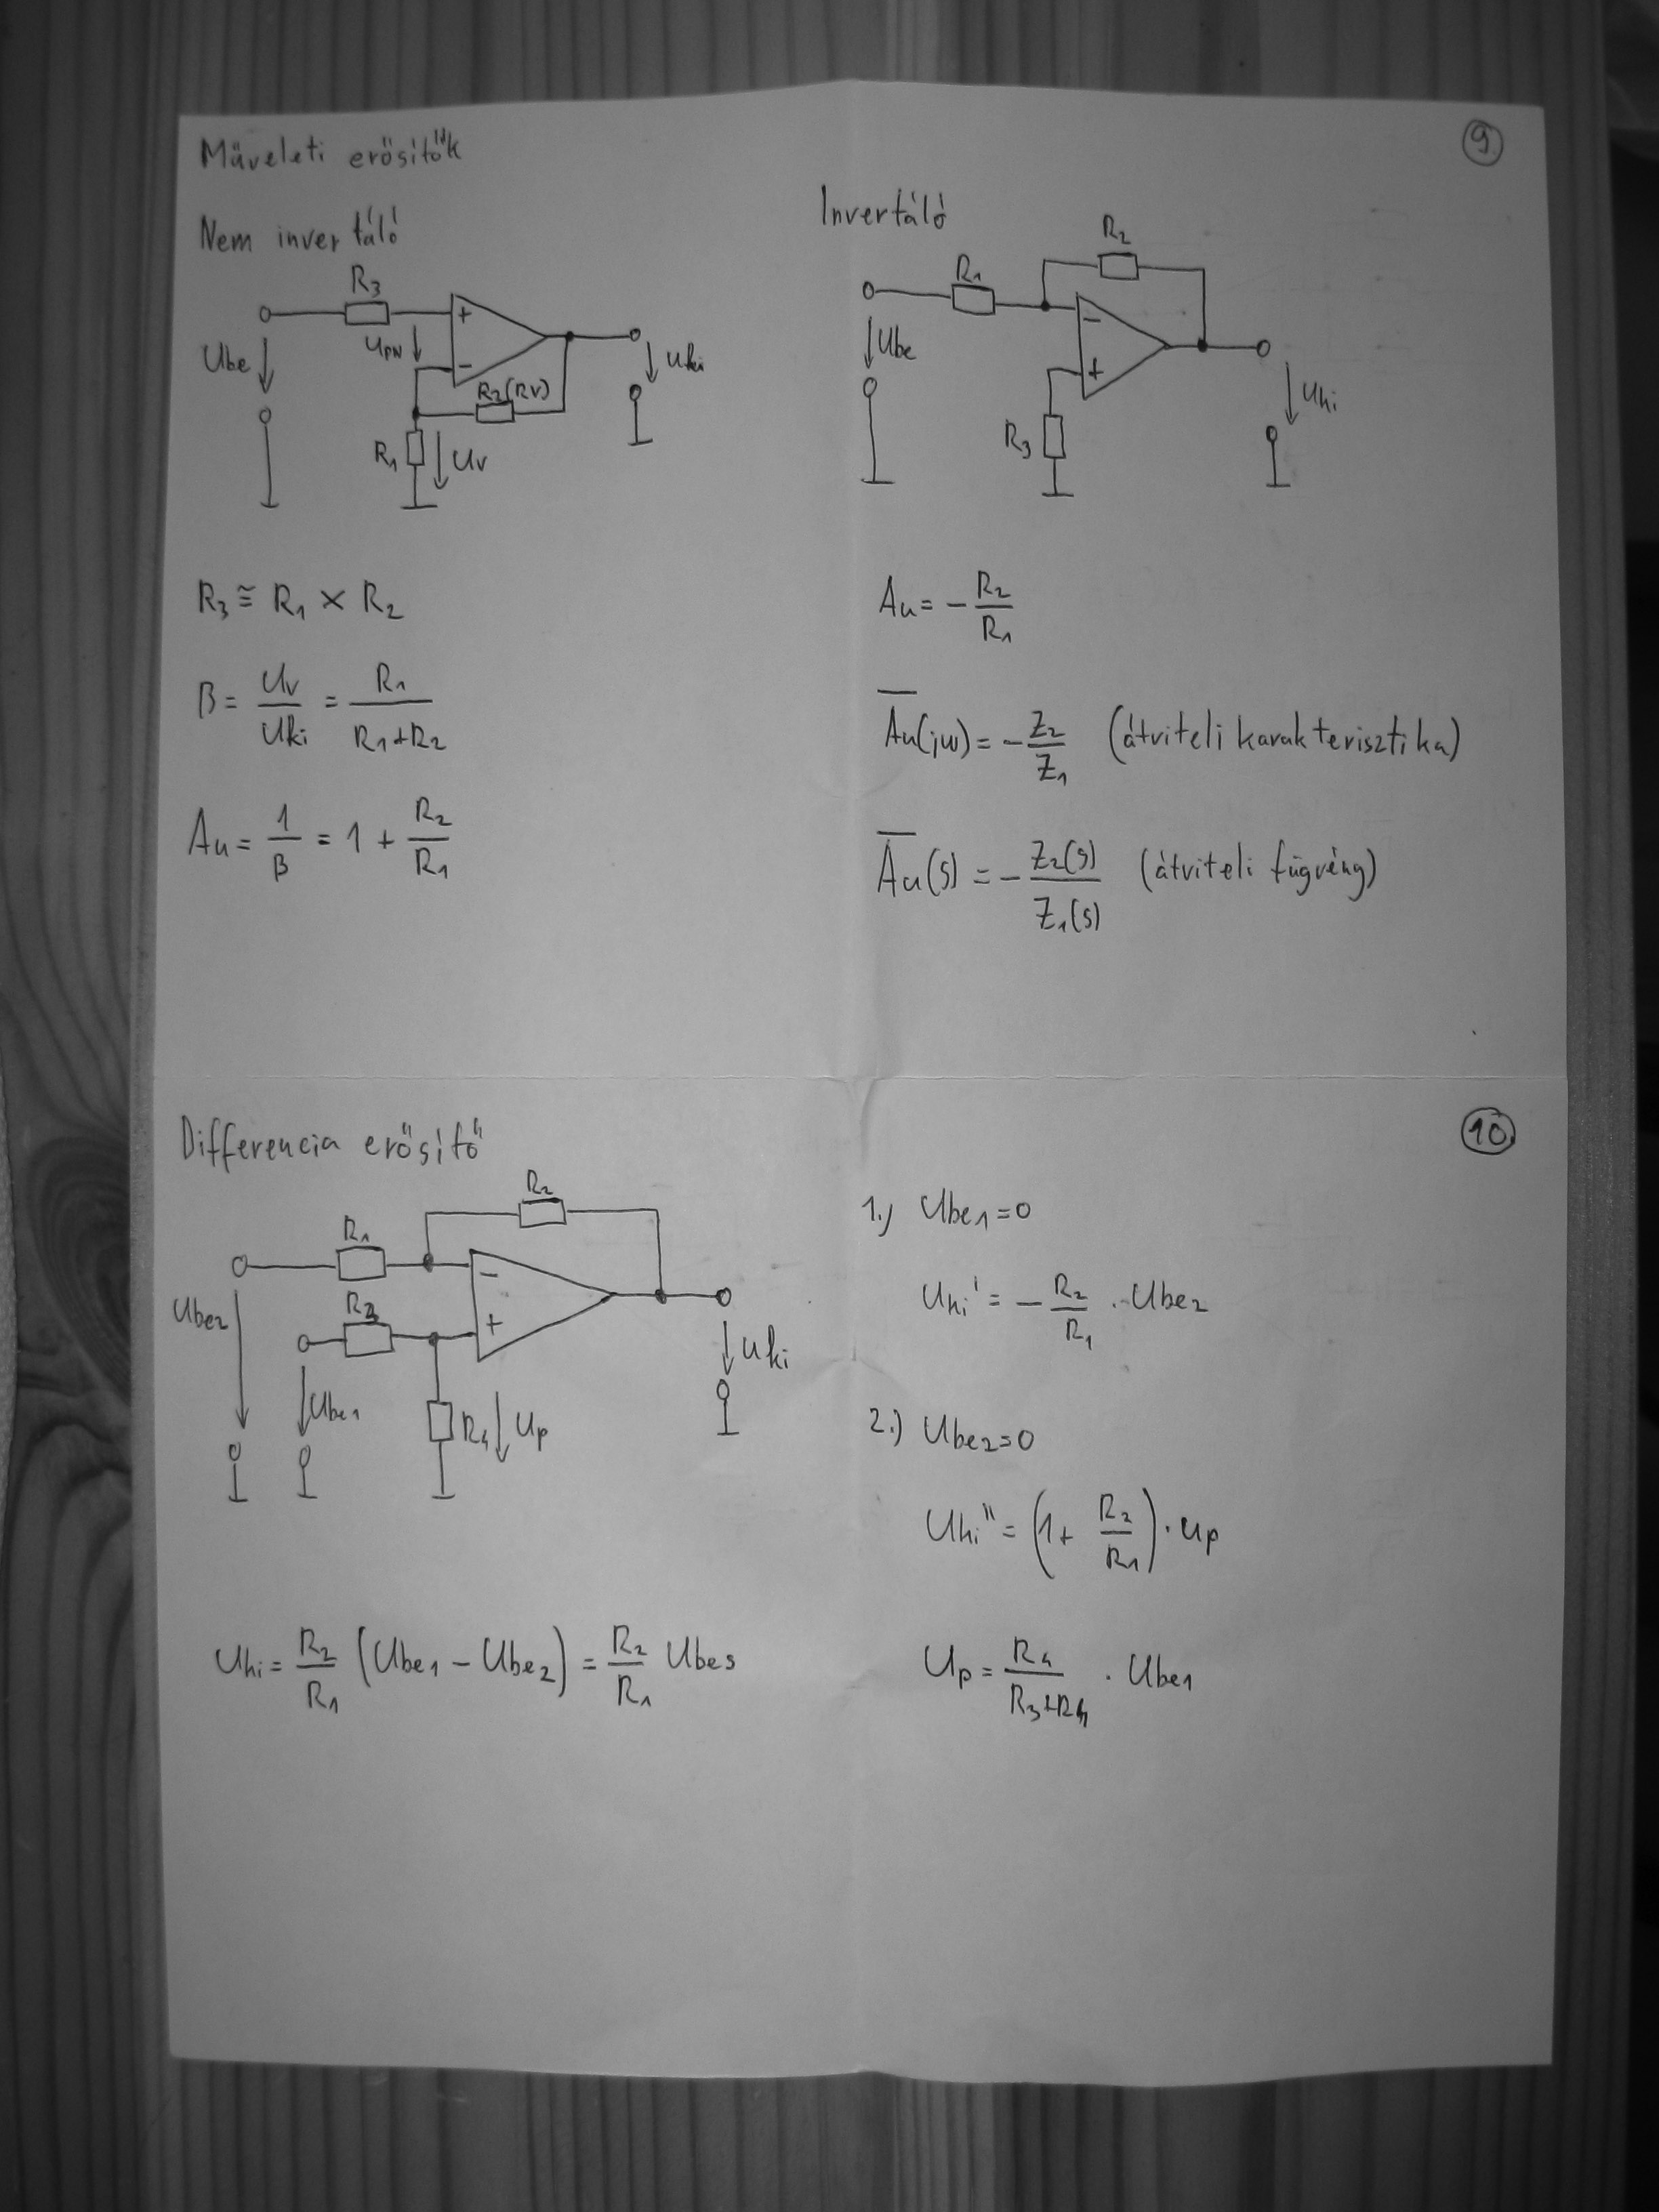 Műveleti erősítők
9.
Nem invertáló
R₃
Ube
UPN
+
-
R₂(RV)
Uki
R₁
Uv
R₃ ≅ R₁ × R₂
β = Uv/Uki = R₁/(R₁+R₂)
Au = 1/β = 1 + R₂/R₁
Invertáló
R₂
R₁
Ube
-
+
Uki
R₃
Au = - R₂/R₁
A̅u(jω) = - Z₂/Z₁ (átviteli karakterisztika)
A̅u(s) = - Z₂(s)/Z₁(s) (átviteli fügvény)
Differencia erősítő
10.
R₂
R₁
Ube2
R3
-
+
Uki
Ube1
R₄
Up
Uki = R₂/R₁ (Ube₁ - Ube₂) = R₂/R₁ Ubes
1.) Ube₁=0
Uki' = - R₂/R₁ · Ube₂
2.) Ube₂=0
Uki" = (1 + R₂/R₁) · Up
Up = R₄/(R₃+R₄) · Ube₁